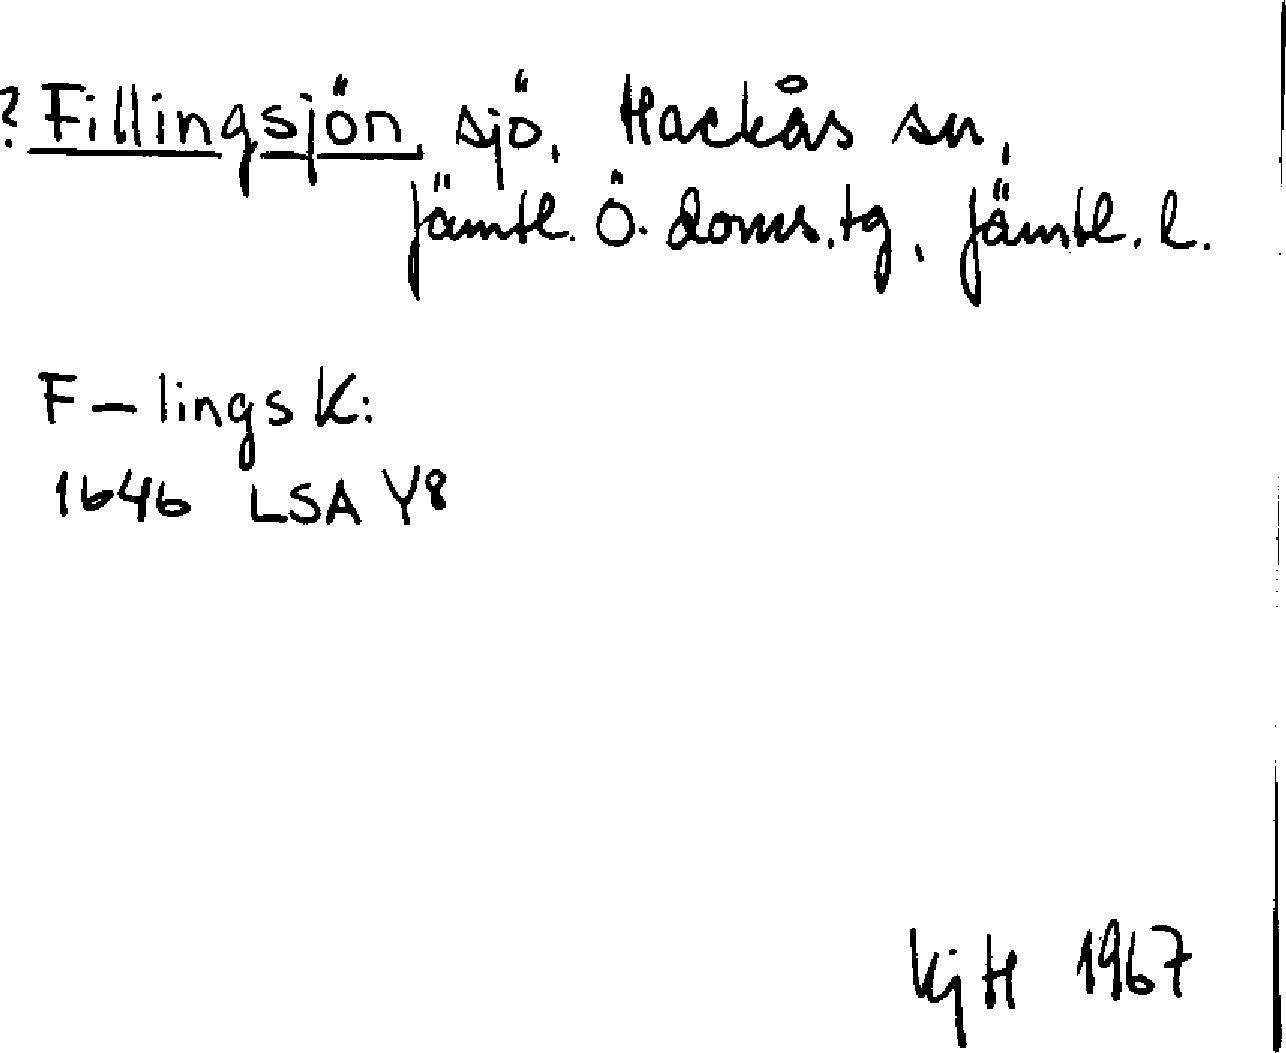 ? Fillingsjön, sjö, Hackås sn,
Jämtl. Ö. doms.tg, Jämtl. l.
F – lings K:
1646 LSA Y8
KjH 1967